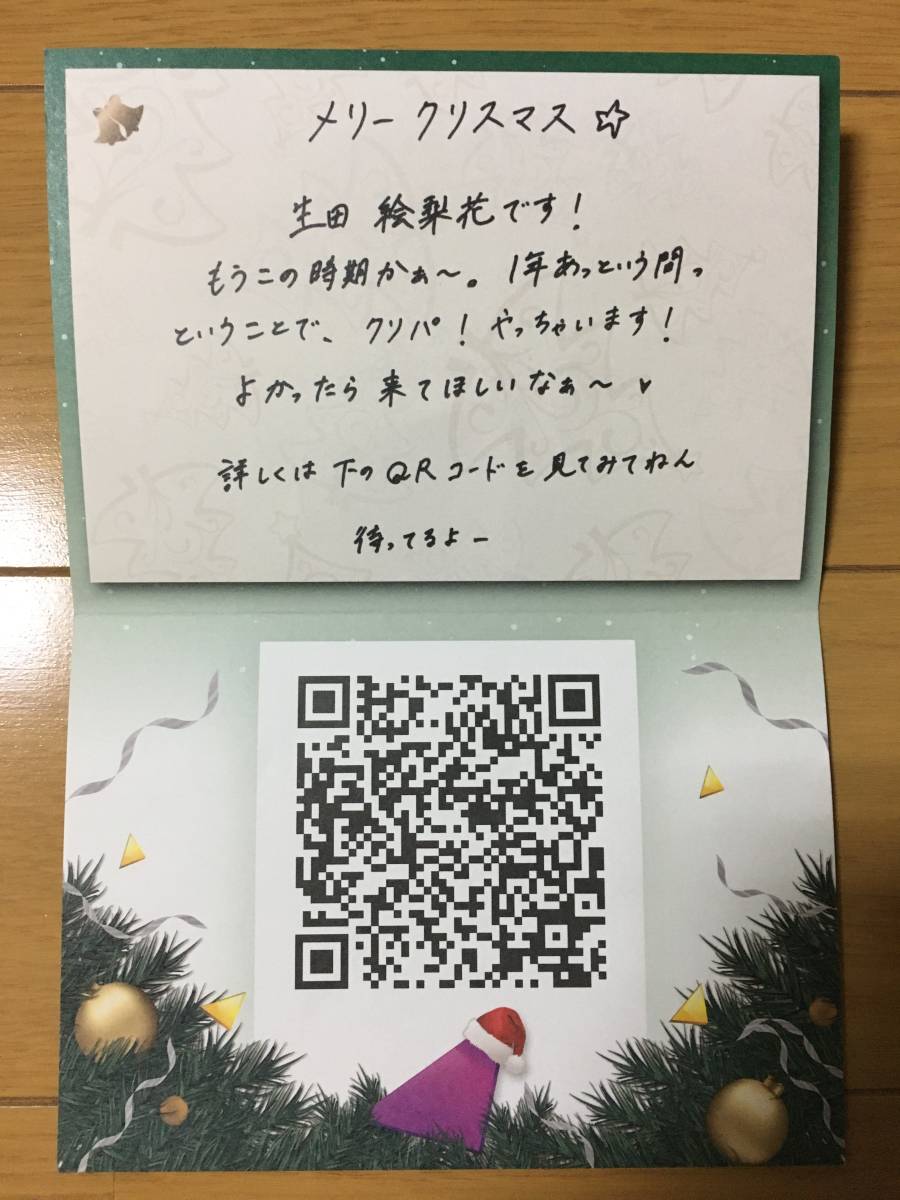 メリークリスマス☆
生田 絵梨花です!
もうこの時期かぁ〜。1年あっという間っ
ということで、クリパ!やっちゃいます!
よかったら来てほしいなぁ〜♥
詳しくは下のQRコードを見てみてねん
待ってるよー